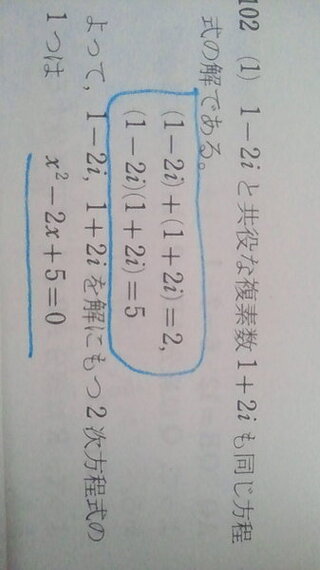 102 (1) 1−2i と共役な複素数 1+2i も同じ方程
式の解である。
(1−2i)+(1+2i)=2,
(1−2i)(1+2i)=5
よって，1−2i，1+2i を解にもつ 2 次方程式の
1 つは x²−2x+5=0